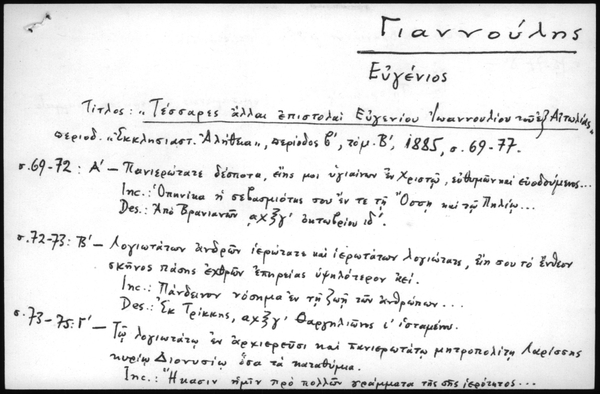 Γιαννούλης
Εὐγένιος
Τίτλος: „Τέσσαρες ἄλλαι ἐπιστολαὶ Εὐγενίου Ἰωαννουλίου τοῦ ἐξ Αἰτωλίας„
περιοδ. „Ἐκκλησιαστ. Ἀλήθεια„, περίοδος β΄, τόμ. Β΄, 1885, σ. 69-77.
σ. 69-72: Α΄ – Πανιερώτατε δέσποτα, εἴης μοι ὑγιαίνων ἐν Χριστῷ, εὐθυμῶν καὶ εὐοδούμενος...
Inc.: Ὁπηνίκα ἡ σεβασμιότης σου ἔν τε τῇ Ὄσσῃ καὶ τῷ Πηλίῳ...
Des.: Ἀπὸ Βρανιανῶν ͵αχξγ΄ ὀκτωβρίου ιδ΄.
σ. 72-73: Β΄ – Λογιωτάτων ἀνδρῶν ἱερώτατε καὶ ἱερωτάτων λογιώτατε, εἴη σου τὸ ἔνθεον
σκῆνος πάσης ἐχθρῶν ἐπηρείας ὑψηλότερον ἀεί.
Inc.: Πάνδεινον νόσημα ἐν τῇ ζωῇ τῶν ἀνθρώπων...
Des.: Ἐκ Τρίκκης, ͵αχξγ΄ Θαργηλιῶνος ι΄ ἱσταμένου.
σ. 73-75: Γ΄ – Τῷ λογιωτάτῳ ἐν ἀρχιερεῦσι καὶ πανιερωτάτῳ μητροπολίτῃ Λαρίσσης
κυρίῳ Διονυσίῳ ὅσα τὰ καταθύμια.
Inc.: Ἥκασιν ἡμῖν πρὸ πολλῶν γράμματα τῆς σῆς ἱερότητος...